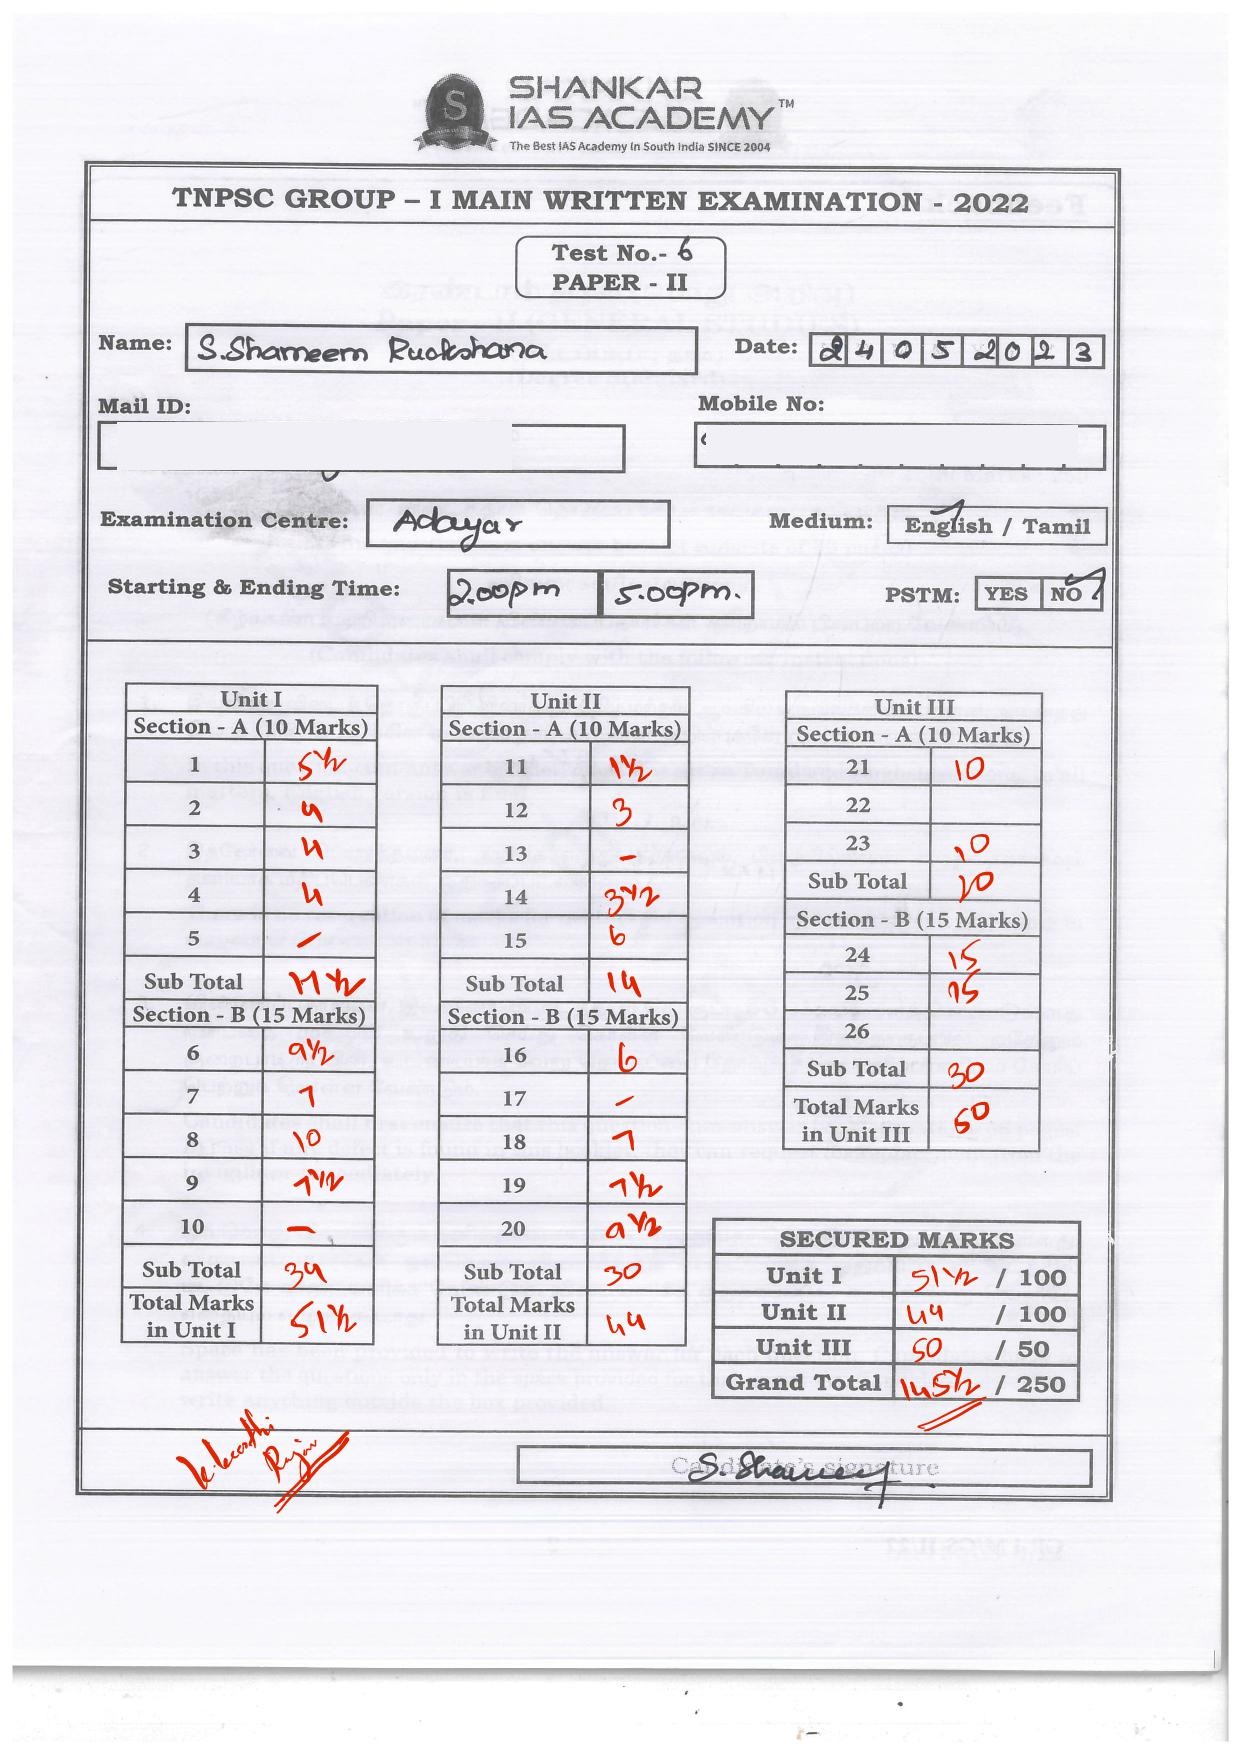 SHANKAR
IAS ACADEMY™
The Best IAS Academy In South India SINCE 2004
TNPSC GROUP – I MAIN WRITTEN EXAMINATION - 2022
Test No.- 6
PAPER - II
Name: S.Shameem Ruckshana Date: 24052023
Mail ID: Mobile No:
Examination Centre: Adayar Medium: English / Tamil
Starting & Ending Time: 2.00pm 5.00pm. PSTM: YES NO
Unit I
Section - A (10 Marks)
1 5½
2 4
3 4
4 4
5 –
Sub Total 17½
Section - B (15 Marks)
6 9½
7 7
8 10
9 7½
10 –
Sub Total 34
Total Marks
in Unit I 51½
Unit II
Section - A (10 Marks)
11 1½
12 3
13 –
14 3½
15 6
Sub Total 14
Section - B (15 Marks)
16 6
17 –
18 7
19 7½
20 9½
Sub Total 30
Total Marks
in Unit II 44
Unit III
Section - A (10 Marks)
21 10
22
23 10
Sub Total 20
Section - B (15 Marks)
24 15
25 15
26
Sub Total 30
Total Marks
in Unit III 50
SECURED MARKS
Unit I 51½ / 100
Unit II 44 / 100
Unit III 50 / 50
Grand Total 145½ / 250
Candidate's signature